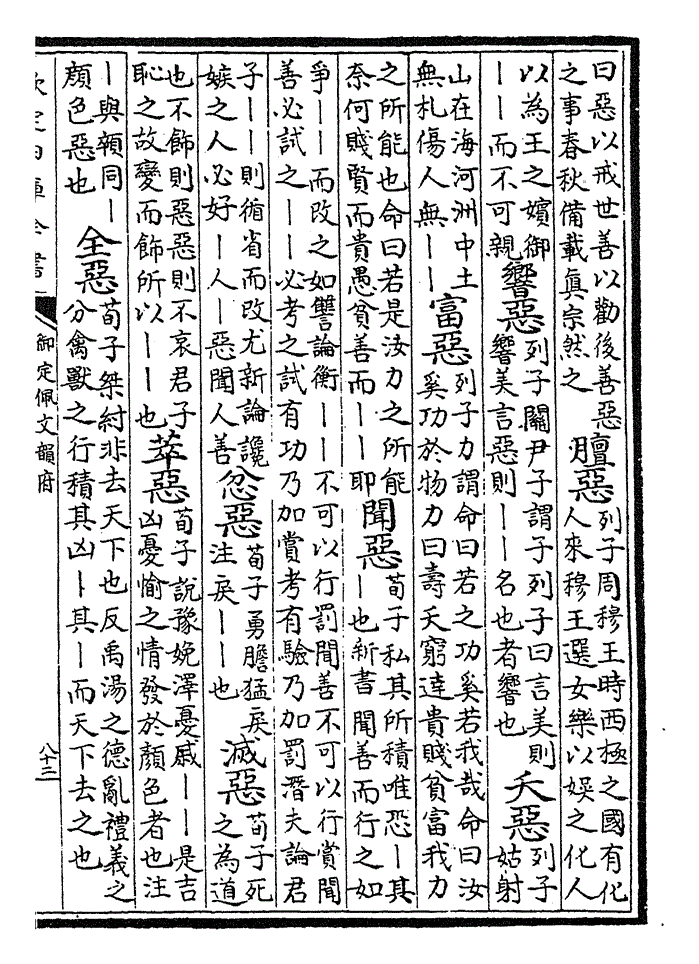 曰惡以戒世善以勸後善惡
之事春秋備載真宗然之
膻惡
列子周穆王時西極之國有化
人來穆王選女樂以娛之化人
以為王之嬪御
——而不可親
響惡
列子關尹子謂子列子曰言美則
響美言惡則——名也者響也
夭惡
列子
姑射
山在海河洲中土
無札傷人無——
富惡
列子力謂命曰若之功奚若我哉命曰汝
奚功於物力曰壽夭窮達貴賤貧富我力
之所能也命曰若是汝力之所能
奈何賤賢而貴愚貧善而——耶
聞惡
荀子私其所積唯恐—其
—也新書聞善而行之如
爭——而改之如讐論衡——不可以行罰聞善不可以行賞聞
善必試之——必考之試有功乃加賞考有驗乃加罰潛夫論君
子——則循省而改尤新論讒
嫉之人必好—人—惡聞人善
忿惡
荀子勇膽猛戾
注戾——也
滅惡
荀子死
之為道
也不飾則惡惡則不哀君子
恥之故變而飾所以——也
萃惡
荀子說豫娩澤憂戚——是吉
凶憂愉之情發於顏色者也注
—與顇同—
顏色惡也
全惡
荀子桀紂非去天下也反禹湯之德亂禮義之
分禽獸之行積其凶—其—而天下去之也
欽定四庫全書
御定佩文韻府
八十三